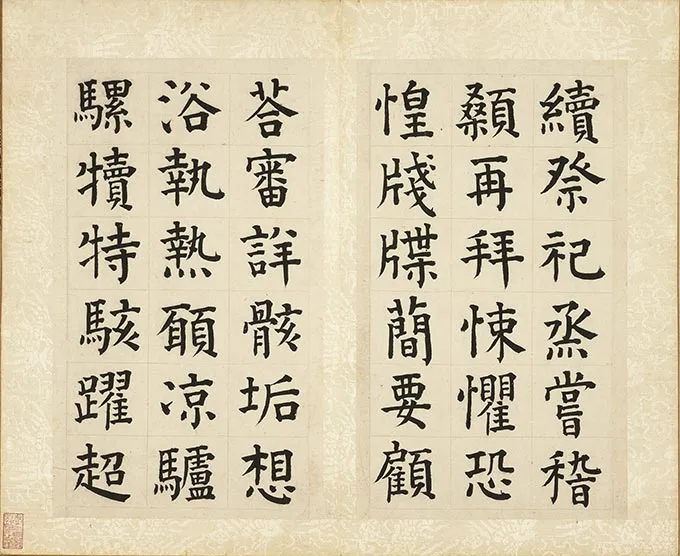 續祭祀烝嘗稽
顙再拜悚懼恐
惶牋牒蕳要顧
荅審詳骸垢想
浴執熱願凉驢
騾犢特駭躍超